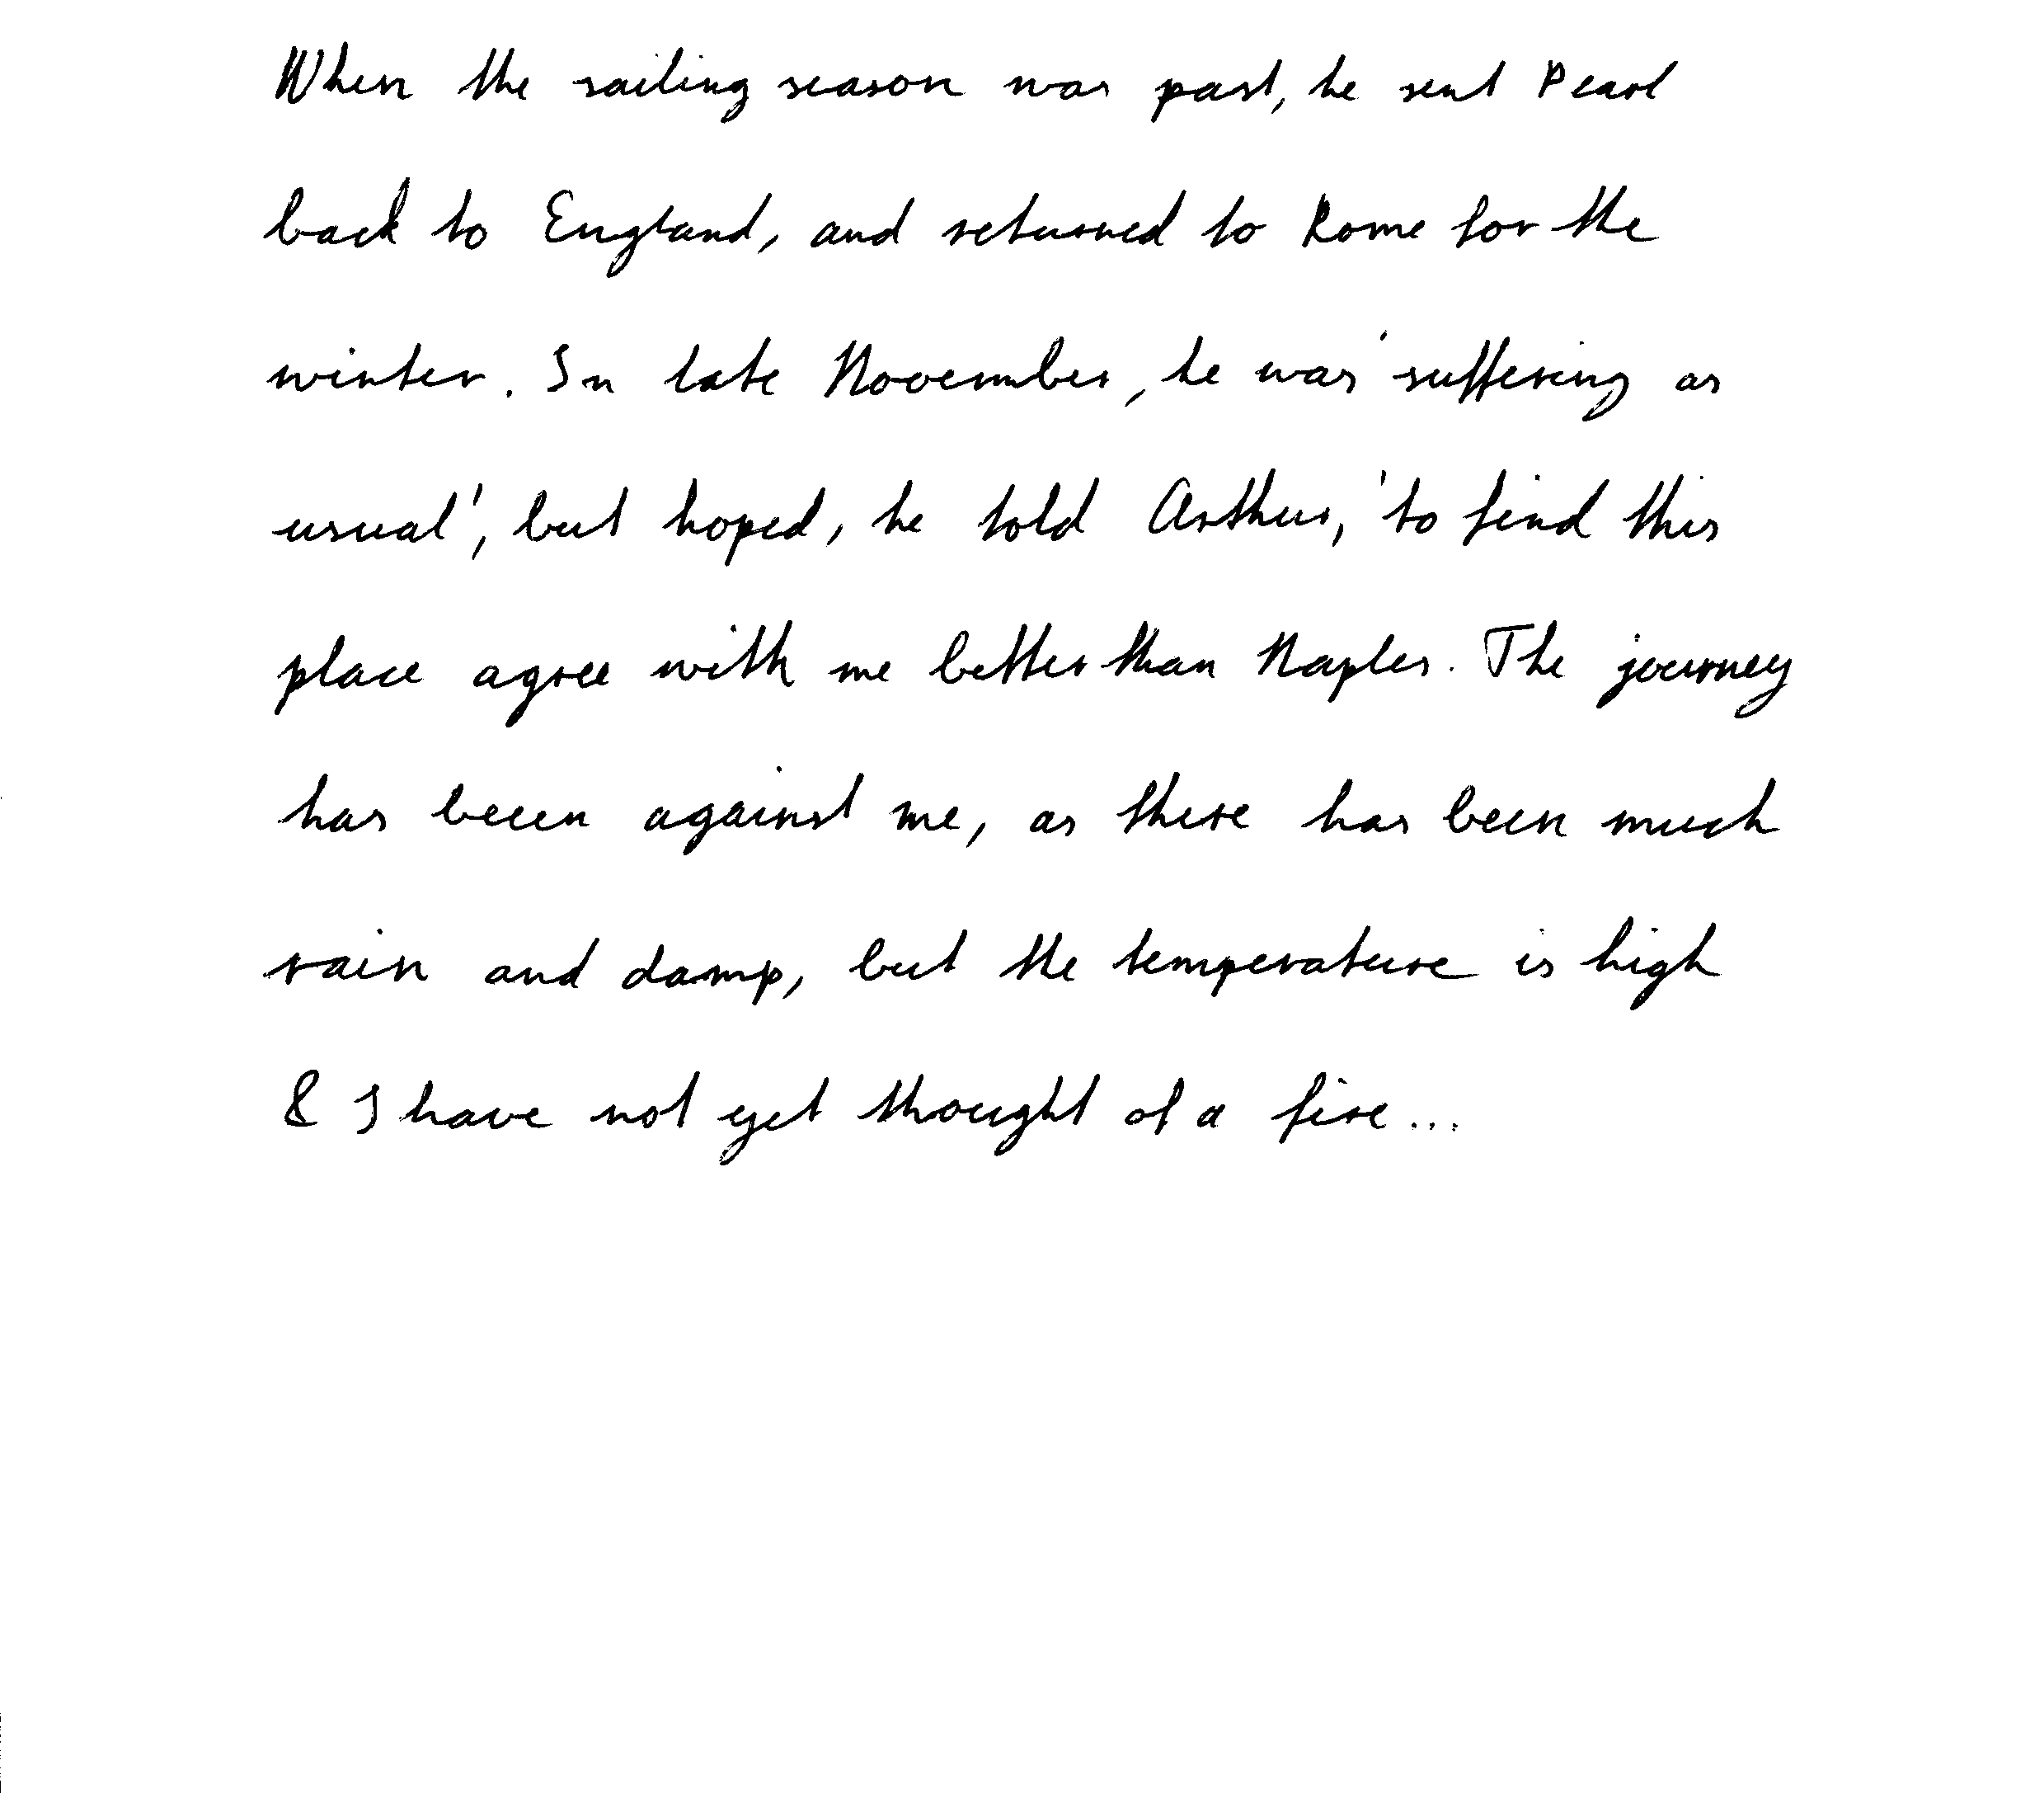 When the sailing season was past, he sent Pearl
back to England, and returned to Rome for the
winter. In late November, he was 'suffering as
usual', but hoped, he told Arthur, 'to find this
place agree with me better than Naples. The journey
has beeen against me, as there has been much
rain and damp, but the temperature is high
& I have not yet thought of a fire...